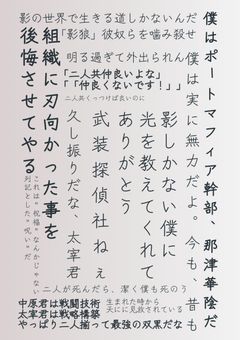 僕はポートマフィア幹部、那津華陰だ
僕は実に無力だよ。今も、昔も
影の世界で生きる道しかないんだ
「影狼」彼奴らを噛み殺せ
明る過ぎて外出られん
「二人共仲良いよな」
「「仲良くないです！」」
二人共くっつけば良いのに
影しかない僕に
光を教えてくれて
ありがとう
武装探偵社ねぇ
久し振りだな、太宰君
組織に刃向かった事を
後悔させてやる
これは“祝福”なんかじゃない
列記とした“呪い”だ
二人が死んだら、潔く僕も死のう
中原君は戦闘技術
太宰君は戦略構築
生まれた時から
天にに見放されている
やっぱり二人揃って最強の双黒だな